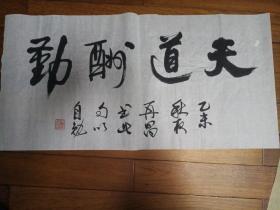 天道酬勤
乙未
秋夜
再昌
书此
句以
自勉